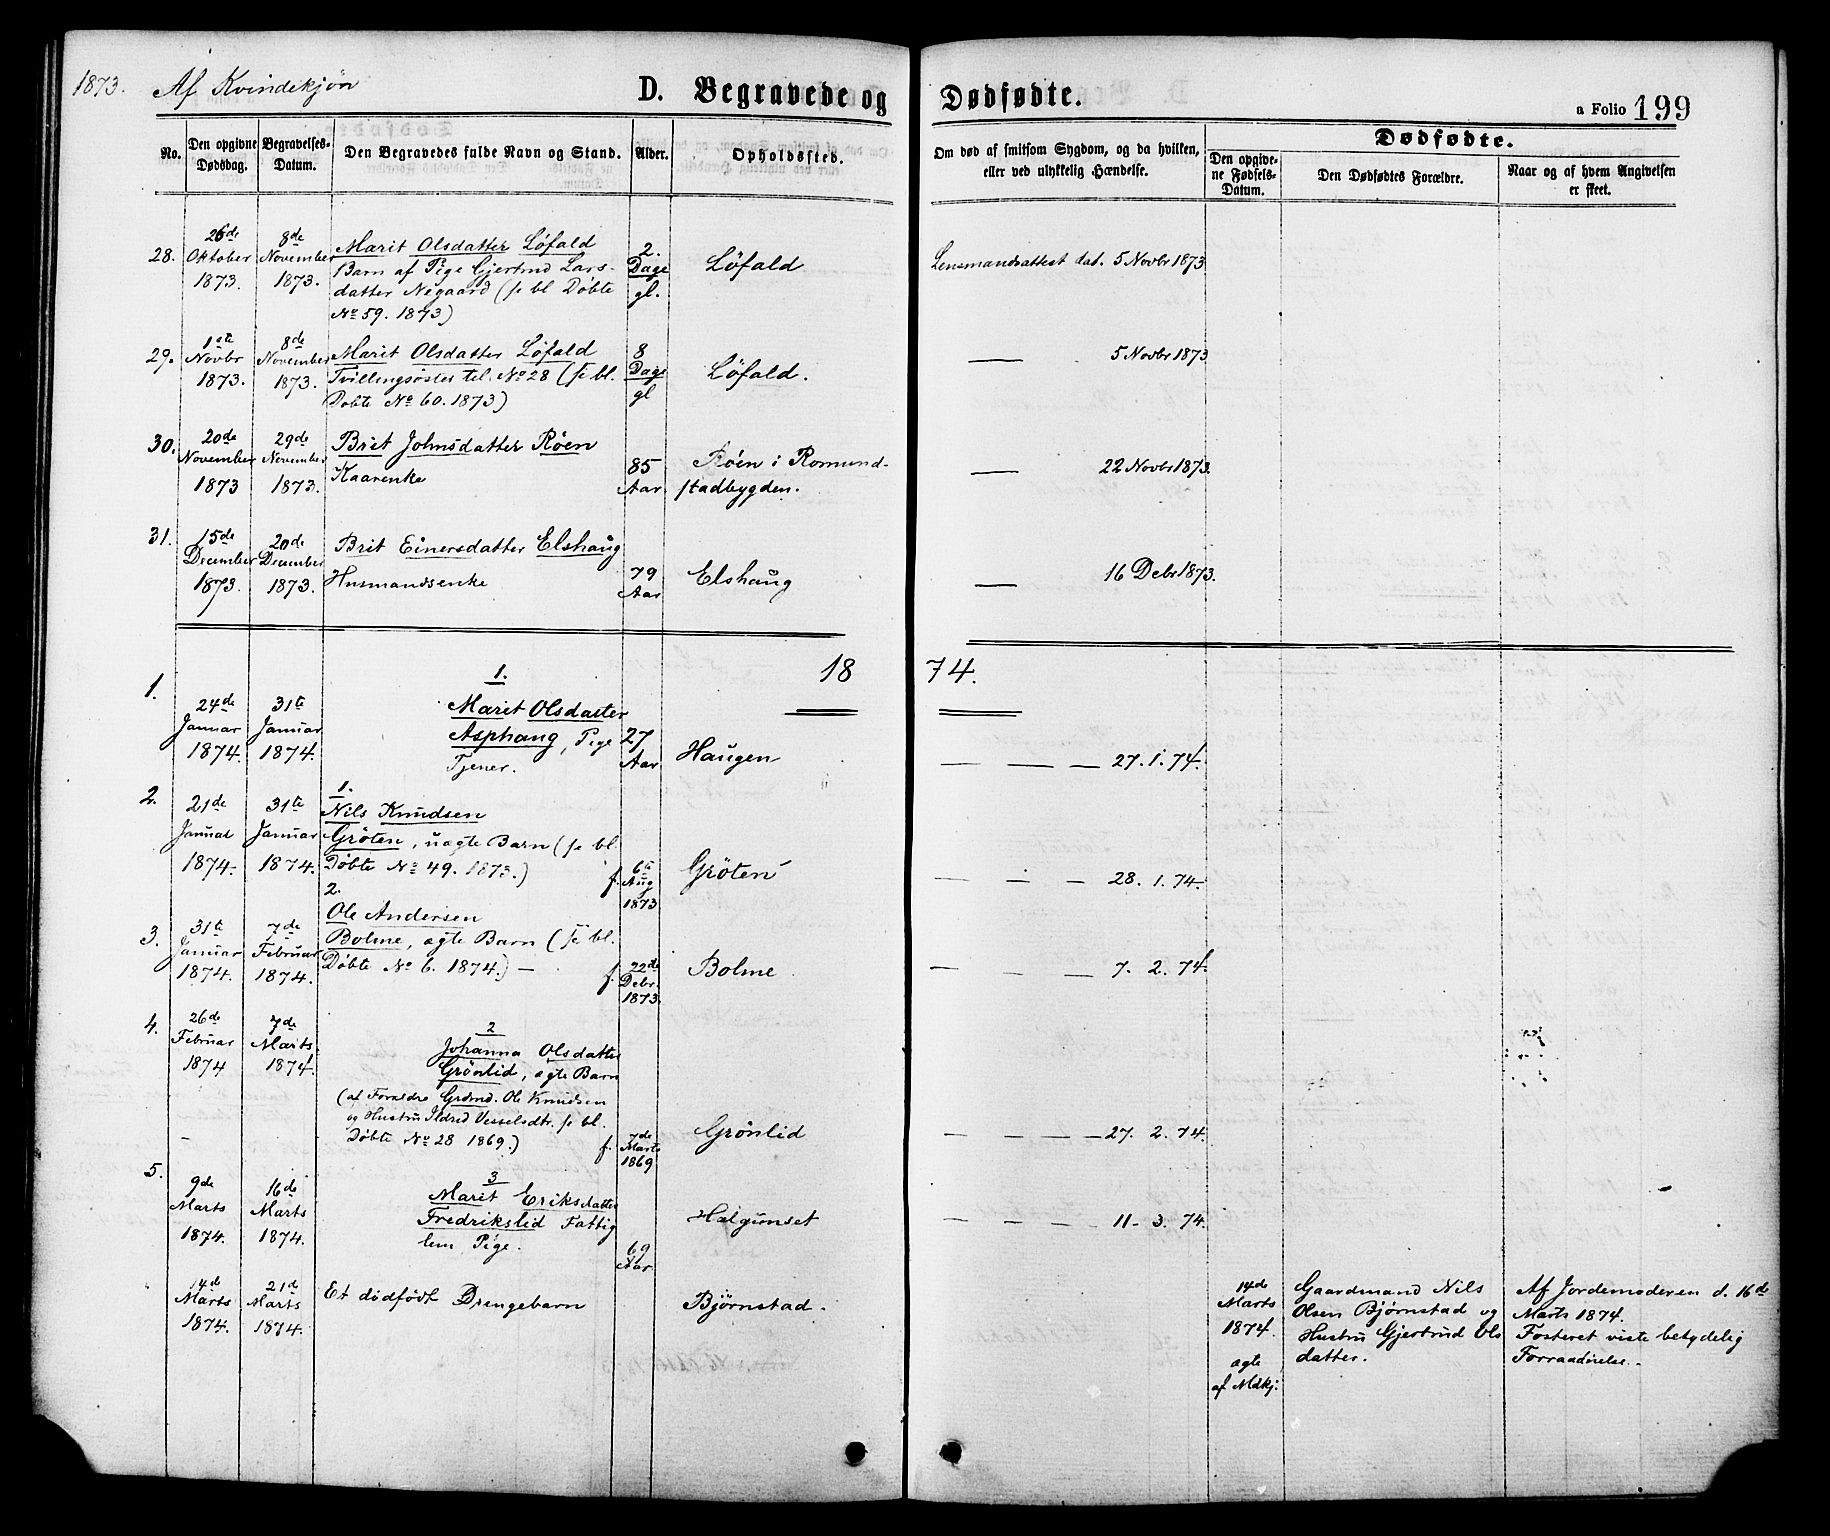 1873. Af Kvindekjøn D. Begravede og Dødfødte. a Folio 199
No. Den opgivne Dødsdag. Begravelses-Datum. Den Begravedes fulde Navn og Stand. Alder. Opholdssted. Om død af smitsom Sygdom, og da hvilken, eller ved ulykkelig Hændelse. Dødfødte.
Den opgivne Fødsels-Datum. Den Dødfødtes Forældre. Naar og af hvem Angivelsen er skeet.
28. 26de Oktober 1873. 8de November 1873. Marit Olsdatter Löfald
Barn af Pige Gjertrud Lars-
datter Negaard (se bl Döbte
No 59. 1873)
2. Dage gl. Löfald Lensmandsattest dat. 5 Novbr 1873
29. 1ste Novbr 1873. 8de November 1873. Marit Olsdatter Löfald
Tvillingsöster til No 28 (se bl.
Döbte No 60. 1873)
8 Dage gl Löfald. — 5 Novbr 1873
30. 20de November 1873 29de November 1873. Brit Johnsdatter Röen
Kaarenke
85 Aar Röen i Romund-
stadbygden. — 22 Novbr 1873.
31. 15de December 1873. 20de December 1873. Brit Einersdatter Elshaug
Husmandsenke
79 Aar Elshaug — 16 Debr 1873.
1874.
1. 24de Januar 1874. 31te Januar 1874. 1.
Marit Olsdatter
Asphaug, Pige
Tjener.
27 Aar Haugen — — — — 27. 1. 74.
2. 21de Januar 1874. 31te Januar 1874. 1.
Nils Knudsen
Gröten, uægte Barn (se bl
Döbte No 49. 1873.)
f. 6te Aug 1873 Gröten — — — 28. 1. 74.
3. 31te Januar 1874. 7de Februar 1874. 2.
Ole Andersen
Bolme, ægte Barn (se bl.
Döbte No 6. 1874.) —
f. 22de Debr. 1873. Bolme — — — 7. 2. 74.
4. 26de Februar 1874 7de Marts 1874. 2
Johanna Olsdatter
Grönlid, ægte Barn
(af Forældre Grdmd. Ole Knudsen
og Hustru Ildrid Vesselsdtr. se bl.
Döbte No 28 1869.)
f. 7de Marts 1869 Grönlid — — — — 27. 2. 74.
5. 9de Marts 1874. 16de Marts 1874. 3
Marit Eriksdatter
Fredrikslid Fattig
lem Pige.
69 Aar Halgunset — — — — 11. 3. 74.
14de Marts 1874. 21de Marts 1874. Et dödfödt Drengebarn Björnstad.
14de Marts 1874. ægte af Mdkj.
Gaardmand Nils
Olsen Bjørnstad og
Hustru Gjertrud Ols
datter.
Af Jordemoderen d. 16de
Marts 1874.
Fosteret viste betydelig
Forraadnelse.